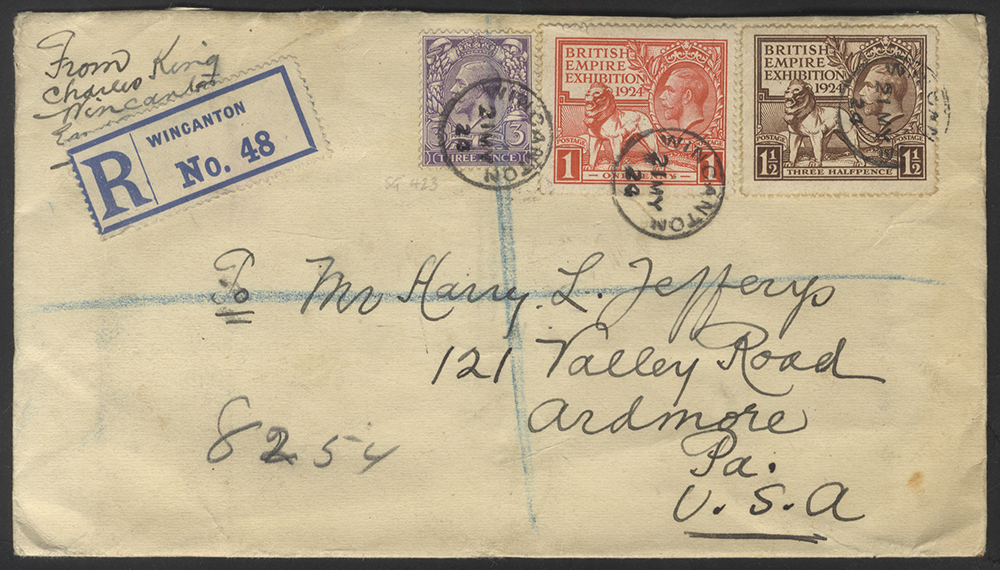 From
Charles King
Wincanton
R
WINCANTON
No. 48
3
THREE PENCE
BRITISH
EMPIRE
EXHIBITION
1924
POSTAGE
1
1
BRITISH
EMPIRE
EXHIBITION
1924
POSTAGE
1½
THREE HALFPENCE
1½
WINCANTON
21 MY
24
WINCANTON
21 MY
24
21 MY
24
SG 423
To
Mr Harry L. Jefferys
121 Valley Road
Ardmore
Pa.
U.S.A
8254